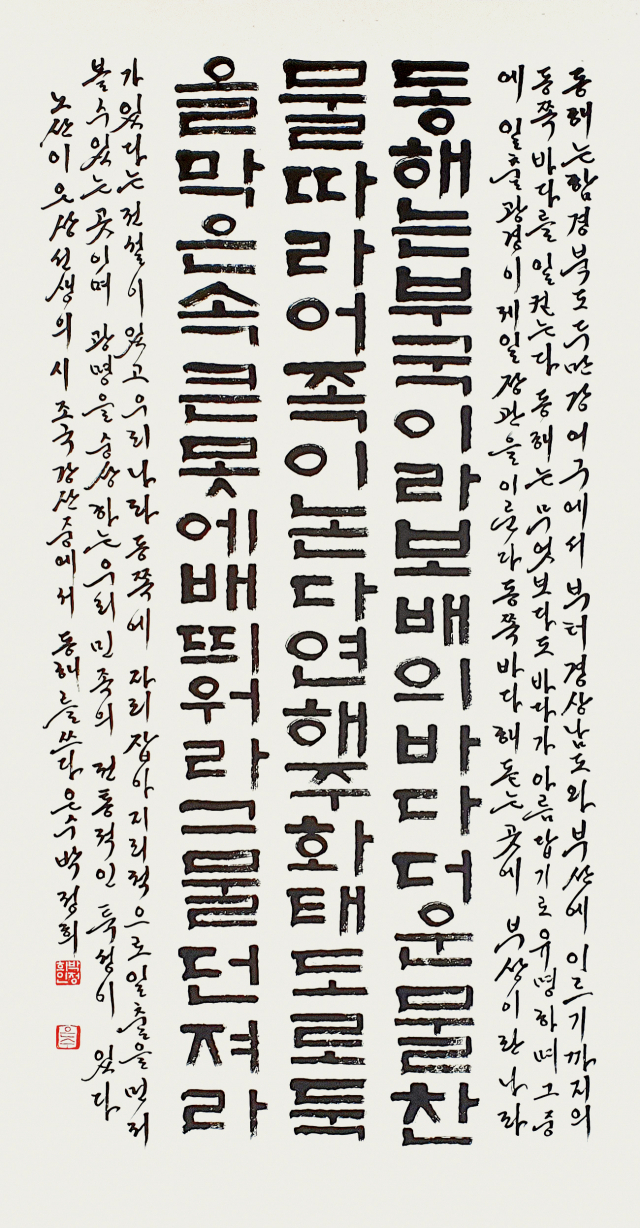 동해는 함경북도 두만강 어구에서 부터 경상남도와 부산에 이르기까지의
동쪽 바다를 일컫는다 동해는 무엇보다도 바다가 아름답기로 유명하며 그 중
에 일출 광경이 제일 장관을 이룬다 동쪽 바다 해 돋는 곳에 부상이란 나라
동해는부국이라보배의바다더운물찬
물따라어족이논다연해주화태도로둑
을막은속큰못에배띄워라그물던져라
가 있다는 전설이 있고 우리나라 동쪽에 자리잡아 지리적으로 일출을 먼저
볼 수 있는 곳이며 광명을 숭상하는 우리 민족의 전통적인 특성이 있다
노산 이은상 선생의 시 조국강산 중에서 동해를 쓰다 은수 박정희
박정희인
은수